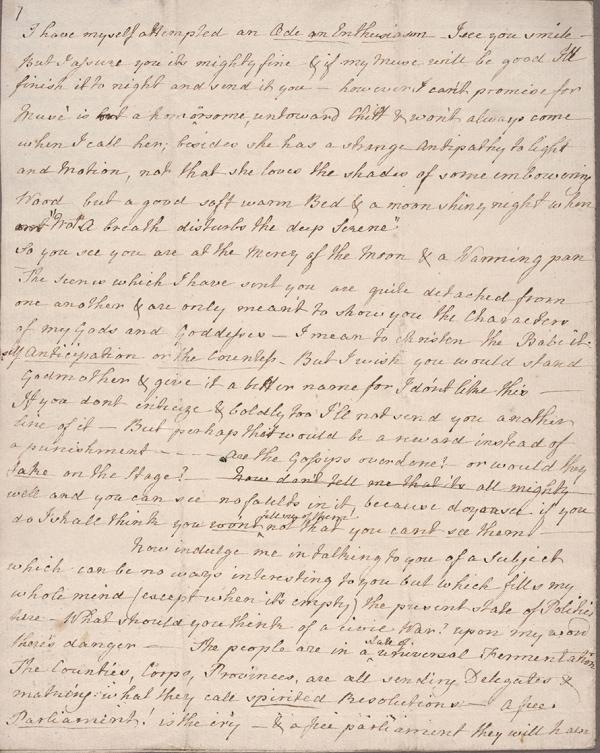 7
I have myself attempted an Ode on Enthusiasm - I see you smile -
But I assure you its mighty fine & if my Muse will be good I'll
finish it to night and send it you - however I can't promise for
Muse is but a homorsome, untoward Chitt & won't always come
when I call her; besides she has a strange Antipathy to light
and Motion, not that she loves the shades of some imbowering
Wood but a good soft warm Bed & a moon shiny night when
"Not a breath disturbs the deep Serene"
So you see you are at the Mercy of the Moon & a Warming pan
The Scenes which I have sent you are quite detached from
one another & are only meant to show you the Characters
of my Gods and Goddesses - I mean to christen the Babe it-
self Anticipation or the Countess - But I wish you would stand
Godmother & give it a better name for I don't like this -
If you dont criticize & boldly too I'll not send you another
line of it - But perhaps that would be a reward instead of
a punishment - - - - are the Gossips overdone? - or would they
take on the Stage? - now don't tell me that its all mighty
well and you can see no faults in it, because if you
do I shall think you wont tell me of them not that you cant see them -
Now indulge me in talking to you of a Subject
which can be no ways interesting to you but which fills my
whole mind (except when it's empty) the present state of Politics
here - What should you think of a civil War? upon my word
there's danger - The people are in a State of universal Fermentation
The Counties, Corps, Provinces, are all sending Delegates &
making what they call spirited Resolutions - a free
Parliament! is the cry - & a free parliament they will have